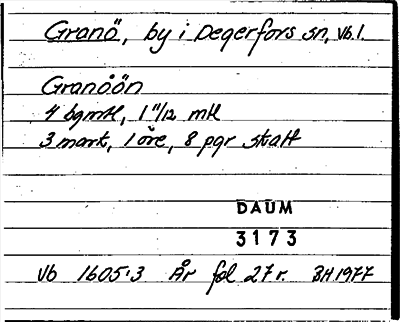 Granö, by i Degerfors sn, Vb.l.
Granöön
4 bgmtl, 1 11/12 mtl
3 mark, 1 öre, 8 pgr skatt
DAUM
3173
Vb 1605:3 År fol 27 r. BH 1977